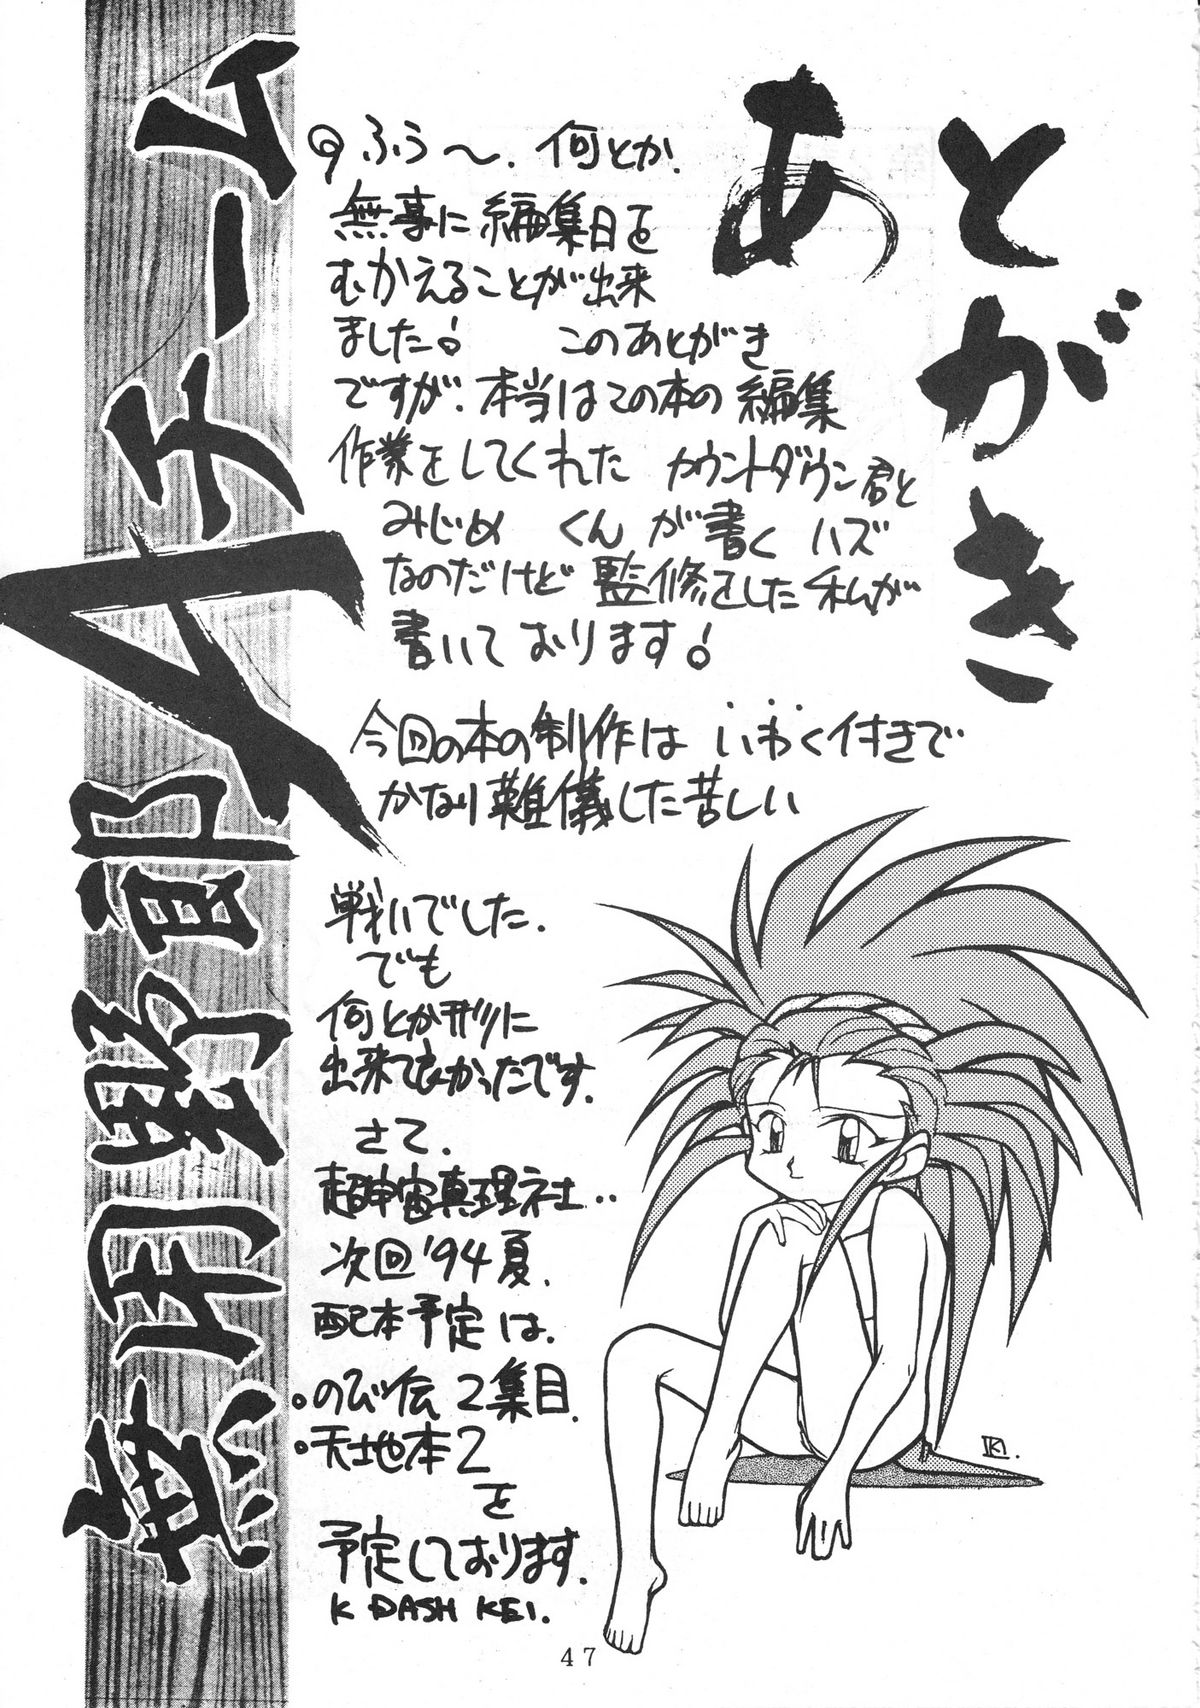 あとがき
ふう〜．何とか．
無事に編集日を
むかえることが出来
ました！　このあとがき
ですが、本当はこの本の編集
作業をしてくれた カウントダウン君と
みじめ くん が書く ハズ
なのだけど 監修をした私が
書いて おります！
今回の本の制作は いわく付きで
かなり難儀した苦しい
戦いでした．
でも
何とか形に
出来て良かったです．
さて．
超宇宙真理社‥
次回'94夏．
配本予定は．
・のび伝 2集目．
・天地本2
を
予定しております．
K DASH KEI.
無用野郎Aチーム
K
47